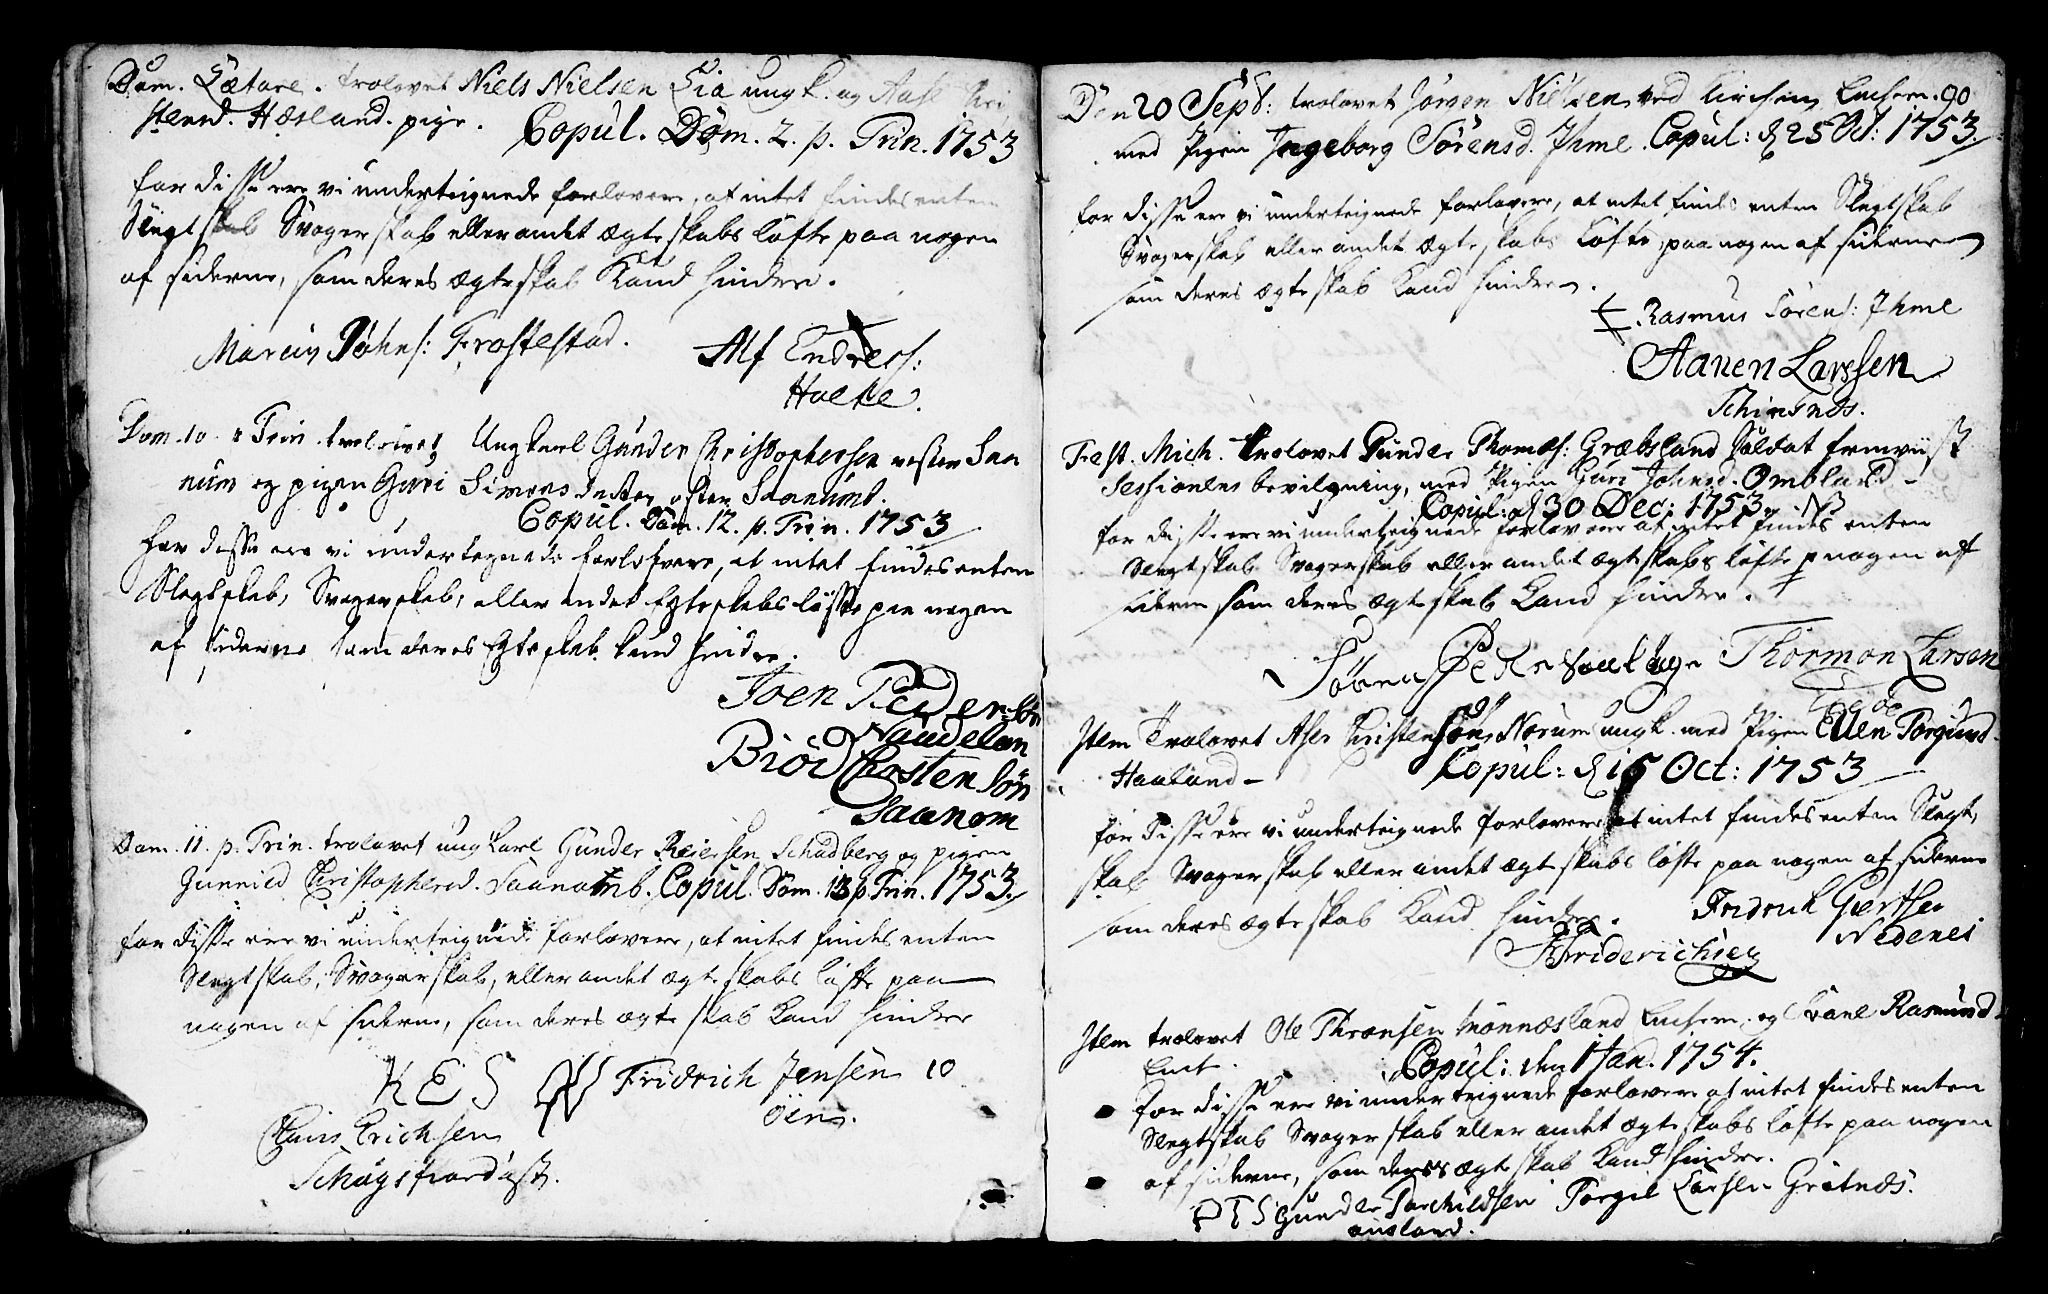 Dom. Lætare. trolovet Niels Nielsen Lia ungk. og Aase Kri
stensd. Hæsland. pige. Copul. Dom. 2. p. Trin. 1753
for disse ere vi underteignede forlovere, at intet findes enten
Slegtskab Svogerskab eller andet ægteskabs løfte paa nogen
af siderne, som deres ægteskab Kand hindre.
Marcus Johns: Frostestad. Alf Endress:
Holte.
Dom. 10. p Trin. trolovet Ungkarl Gunder Christophersen vester Saa
num og pigen Guri Simonsdatter øster Saanum.
Copul. Dom. 12. p. Trin. 1753
For disse ere vi undertegnede forlofvere, at intet findes enten
Slegtskab, Svogerskab, eller andet Egteskabs løfte paa nogen
af Siderne som deres Egteskab kand hindre.
Joen Pedersøn
Naudelan
Biød Kirsten Søn
Saanom
Dom. 11. p. Trin. trolovet ungkarl Gunder Reiersen Schadberg og pigen
Gunnild Christophersd. Saanumb. Copul. Dom. 13 p Trin. 1753
for disse ere vi underteignede forlovere, at intet findes enten
Slegtskab, Svogerskab, eller andet ægteskabs løfte paa
nogen af siderne, som deres ægteskab Kand hindre
K E S Fridrich Jensen 10
Øen.
Erichsen
90
Den 20 Sept: trolovet Jørgen Nielsen ved Kirchen
med Pigen Ingeborg Sørensd. Ihme. Copul: d 25 Oct: 1753
for disse ere vi underteignede forlovere, at intet findes enten Slegtskab
Svogerskab eller andet ægteskabs løfte, paa nogen af siderne
som deres ægteskab Kand hindre.
Rasmus Sørens: Ihme
Aanen Larssen
Schinsnes.
Fest. Mich. trolovet Gunder Thomæs: Græbsland Soldat fremviist
Sessionens bevilgning, med Pigen Guri Johnsd. Ombland
Copul: d 30 Dec: 1753
for disse ere vi underteignede forlovere at intet findes enten
Slegtskab Svogerskab eller andet ægteskabs løfte p nogen aff
siderne som deres ægteskab Kand hindre.
Søren Thormon Larsen
Item Trolovet Aser Christensøn Norum ungk. med Pigen Ellen Torgiusd.
Haaland Copul: d 15 Oct: 1753
for Disse ere vi underteignede forlovere at intet findes enten Slegt,
skab Svogerskab eller andet ægteskabs løfte paa nogen af siderne
som deres ægteskab Kand hindre. Fridrich Giertsen
Nedenes
Friderichsen
Item trolovet Ole Thronsen Mønnæsland og Rasmusd.
Copul: den 1 Jan. 1754.
for disse ere vi underteignede forlovere at intet findes enten
Slegtskab Svogerskab eller andet ægteskabs løfte paa nogen
af siderne, som deres ægteskab Kand hindre.
P T S Gunder Torchildsen Torgel Larsen Gritnes.
ausland.